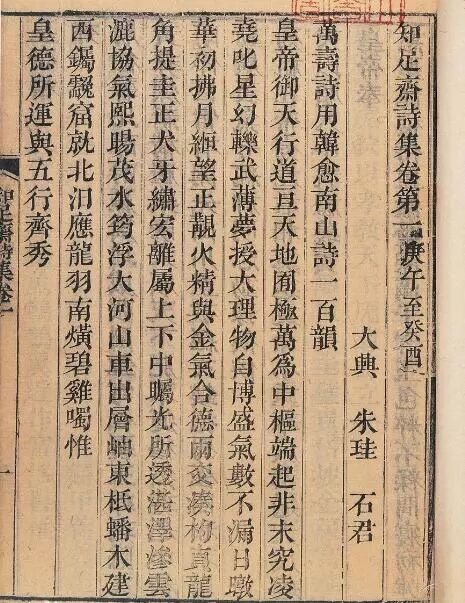 知足齋詩集卷第一庚午至癸酉
大興 朱珪 石君
萬壽詩用韓愈南山詩一百韻
皇帝御天行道亘天地囿極萬爲中樞端起非末究凌
堯叱星幻轢武薄夢授大理物自博盛氣數不漏日暾
華初拂月緪望正覯火精與金氣合德兩交湊枸直龍
角提圭正犬牙繡宏離屬上下中矚光所透湛澤滲雲
漉協氣熙暘茂水筠浮大河山車出層岫東柢蟠木建
西钃䫻窟就北汨應龍羽南爌碧雞噣惟
皇德所運與五行齊秀
知足齋詩集卷一
一